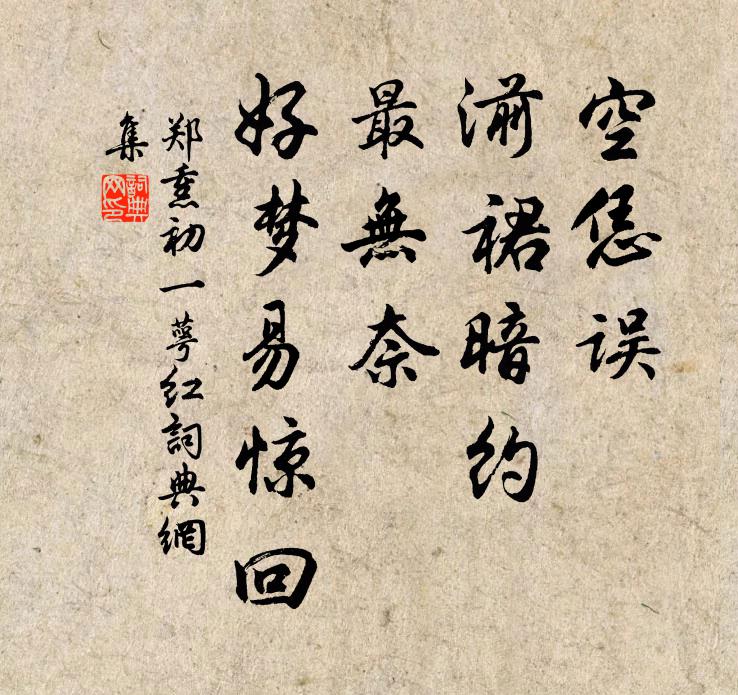 空恁误
湔裙暗约
最無奈
好梦易惊回
郑熏初一萼红詞典網
集
詞典网印